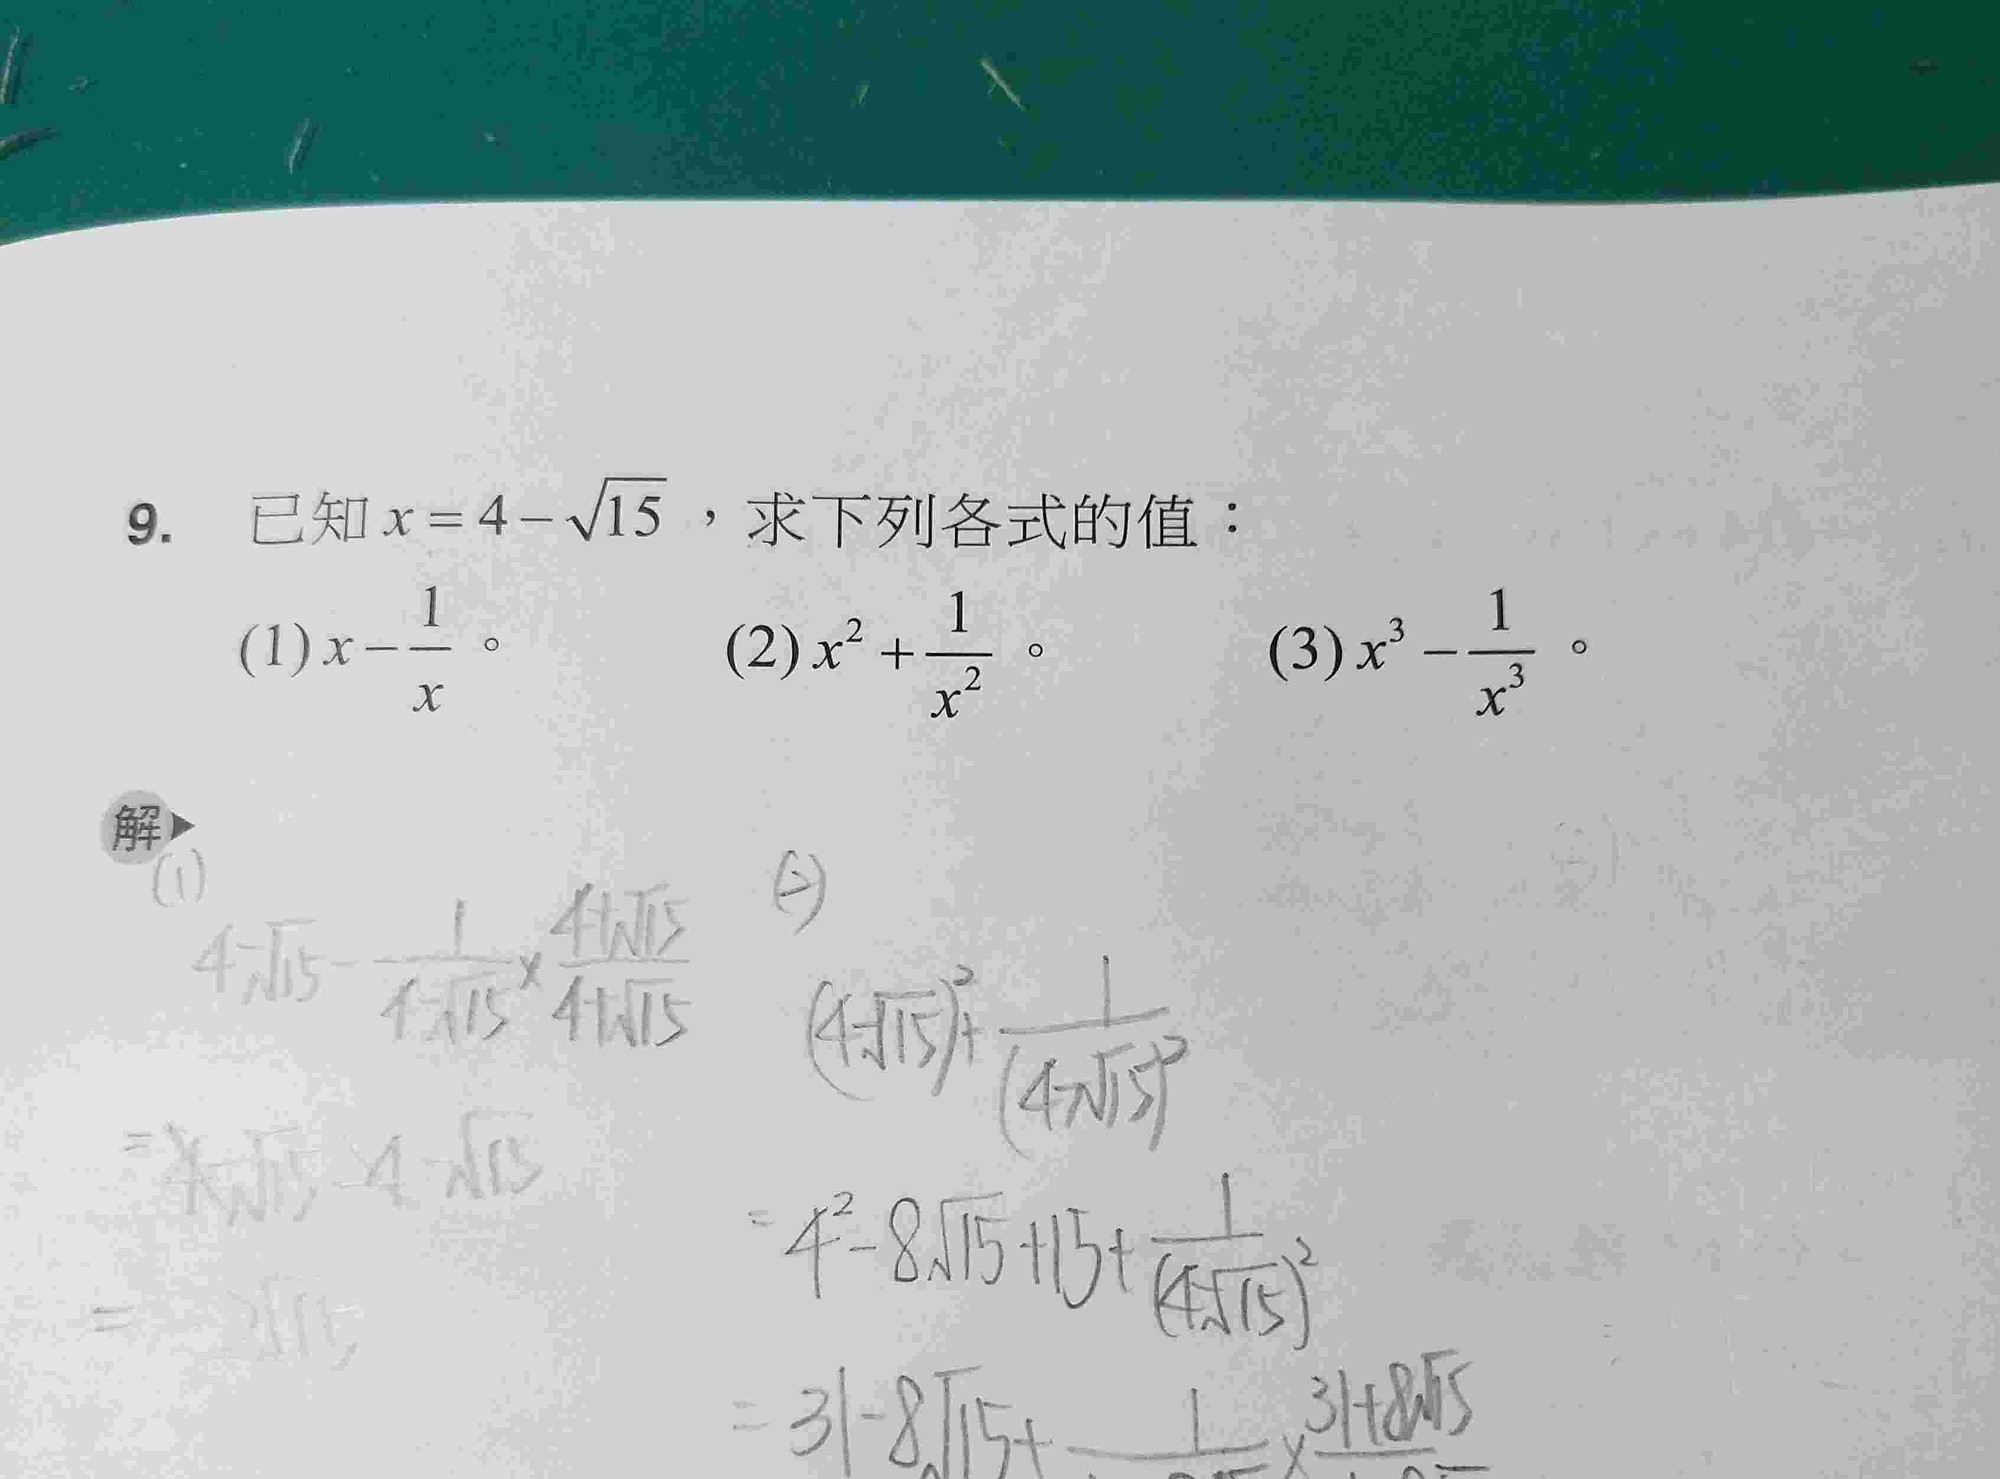 9. 已知 x = 4 − √15 ，求下列各式的值：
(1) x − 1/x 。 (2) x² + 1/x² 。 (3) x³ − 1/x³ 。
解
(1)
4-√15 - 1/(4-√15) × (4+√15)/(4+√15)
= 4-√15 - 4 - √15
= -2√15
(2)
(4-√15)² + 1/(4-√15)²
= 4² - 8√15 + 15 + 1/(4-√15)²
= 31 - 8√15 +
1
× 31+8√15